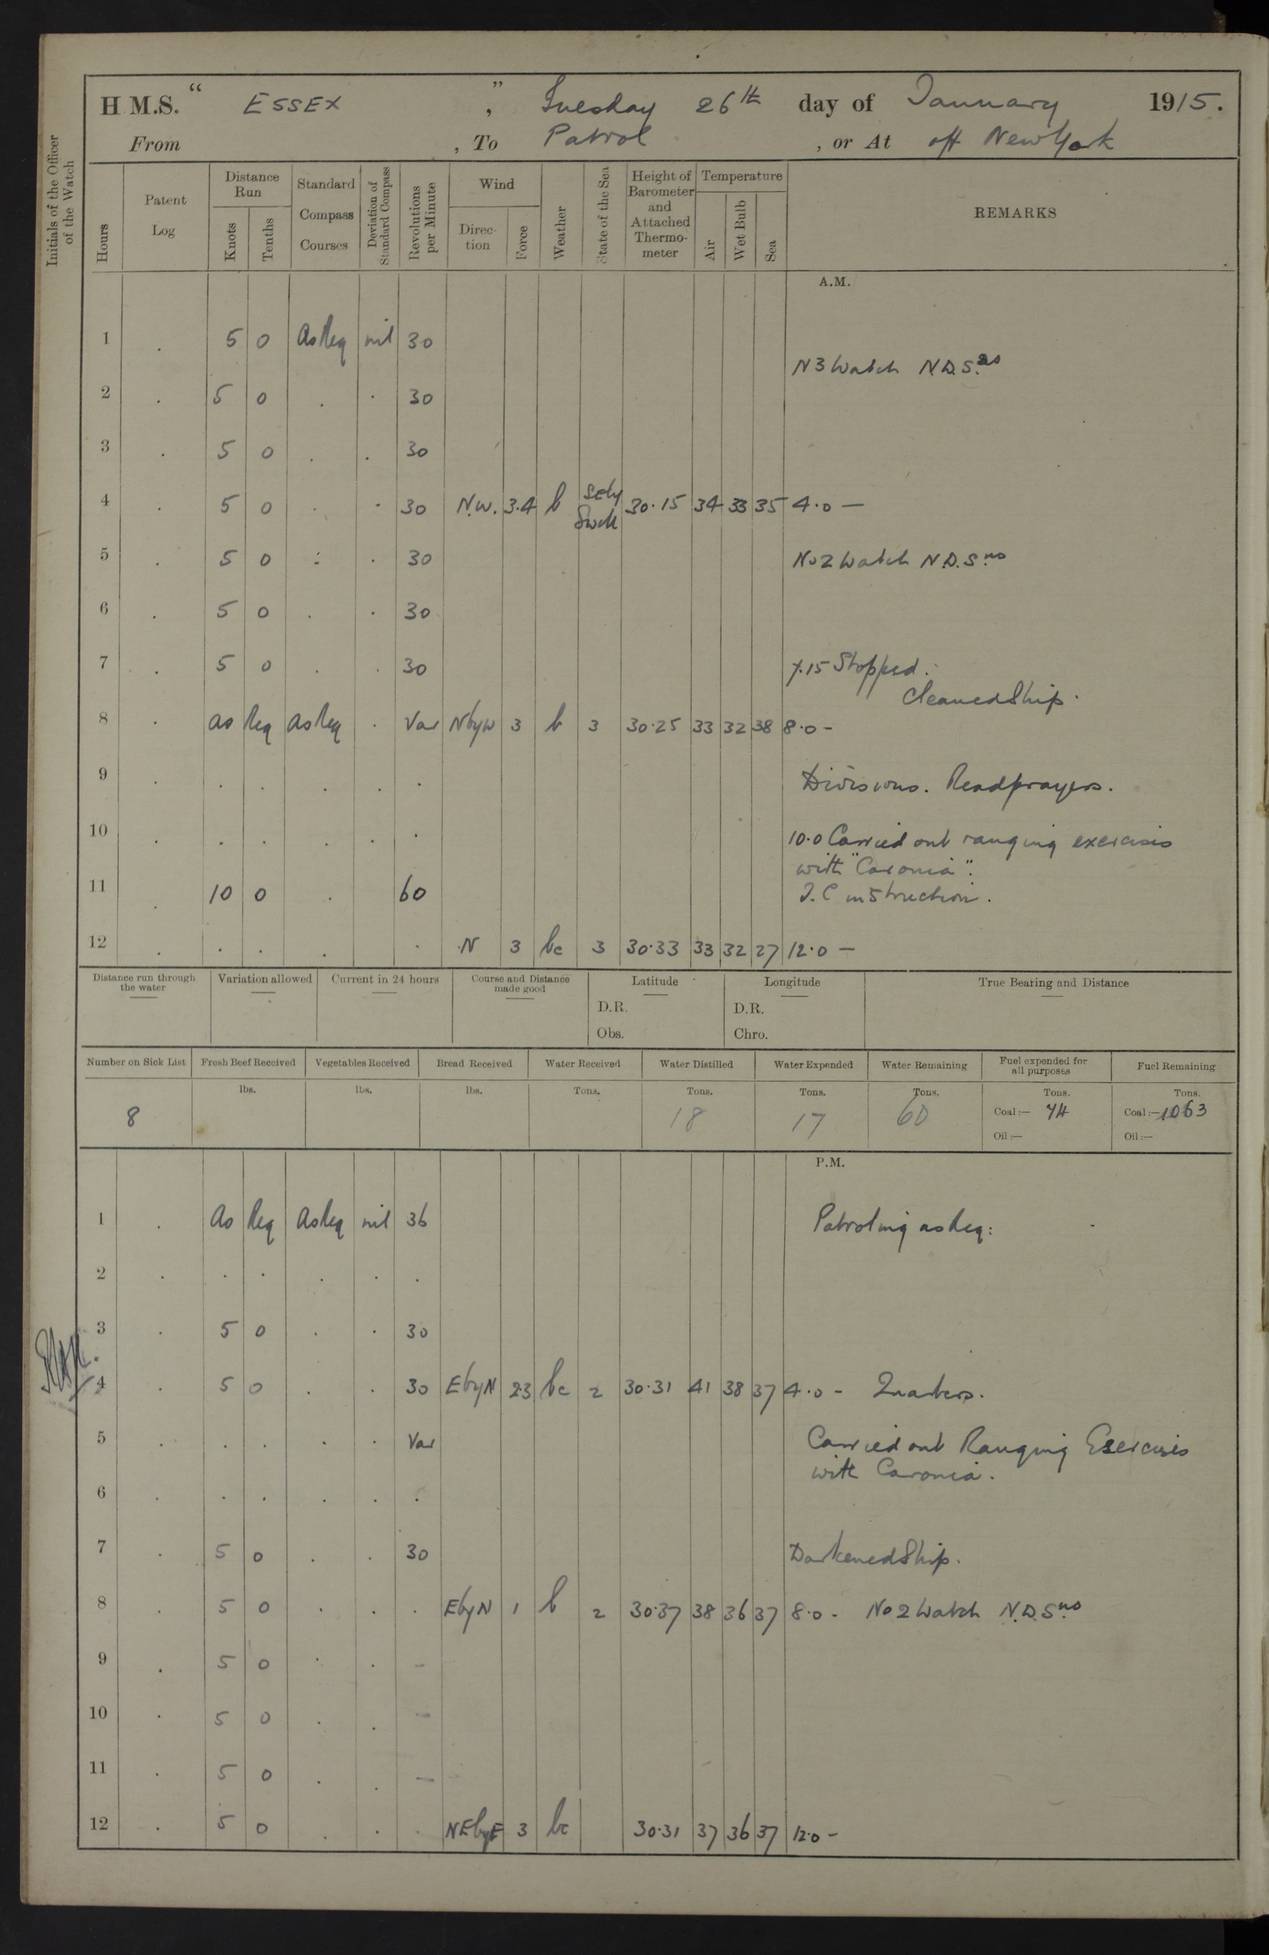 H.M.S. “ ESSEX ”, Tuesday 26th day of January 1915.
From , To Patrol , or At off New York
Initials of the Officer of the Watch
Hours
Patent Log
Distance Run
Knots
Tenths
Standard Compass Courses
Deviation of Standard Compass
Revolutions per Minute
Wind
Direction
Force
Weather
State of the Sea
Height of Barometer and Attached Thermometer
Temperature
Air
Wet Bulb
Sea
REMARKS
A.M.
1 . 5 0 As Req nil 30
N3 Watch N.D.S.
2 . 5 0 . . 30
3 . 5 0 . . 30
4 5 0 . . 30 N.W. 3.4 b Scly Swell 30.15 34 33 35 4.0 —
5 . 5 0 : . 30 No 2 Watch N.D.S.no
6 . 5 0 . . 30
7 . 5 0 . . 30 7.15 Stopped.
Cleaned Ship.
8 . as Req as Req . Var N by W 3 b 3 30.25 33 32 38 8.0 -
9 . . . . . . Divisions. Read prayers.
10 . . . . . . 10.0 Carried out ranging exercises
with "Caronia".
11 . 10 0 . 60 I.C instruction.
12 . . . . . N 3 bc 3 30.33 33 32 27 12.0 —
Distance run through the water
Variation allowed
Current in 24 hours
Course and Distance made good
Latitude
D.R.
Obs.
Longitude
D.R.
Chro.
True Bearing and Distance
Number on Sick List
Fresh Beef Received
Vegetables Received
Bread Received
Water Received
Water Distilled
Water Expended
Water Remaining
Fuel expended for all purposes
Fuel Remaining
lbs. lbs. lbs. Tons. Tons. Tons. Tons. Tons. Tons.
8 18 17 60 Coal :— 74 Coal :— 1063
Oil :— Oil :—
P.M.
1 . As Req As Req nil 36 Patroling as Req:
2 . . . . . .
3 . 5 0 . . 30
4 . 5 0 . . 30 E by N 2.3 bc 2 30.31 41 38 37 4.0 - Quarters.
5 . . . . . Var Carried out Ranging Exercises
with Caronia.
6 . . . . . .
7 . 5 0 . . 30 Darkened Ship.
8 . 5 0 . . . E by N 1 b 2 30.37 38 36 37 8.0 - No 2 Watch N.D.S.no
9 . 5 0 . . -
10 . 5 0 . . -
11 . 5 0 . . —
12 . 5 0 . . . NE by E 3 bc 30.31 37 36 37 12.0 -